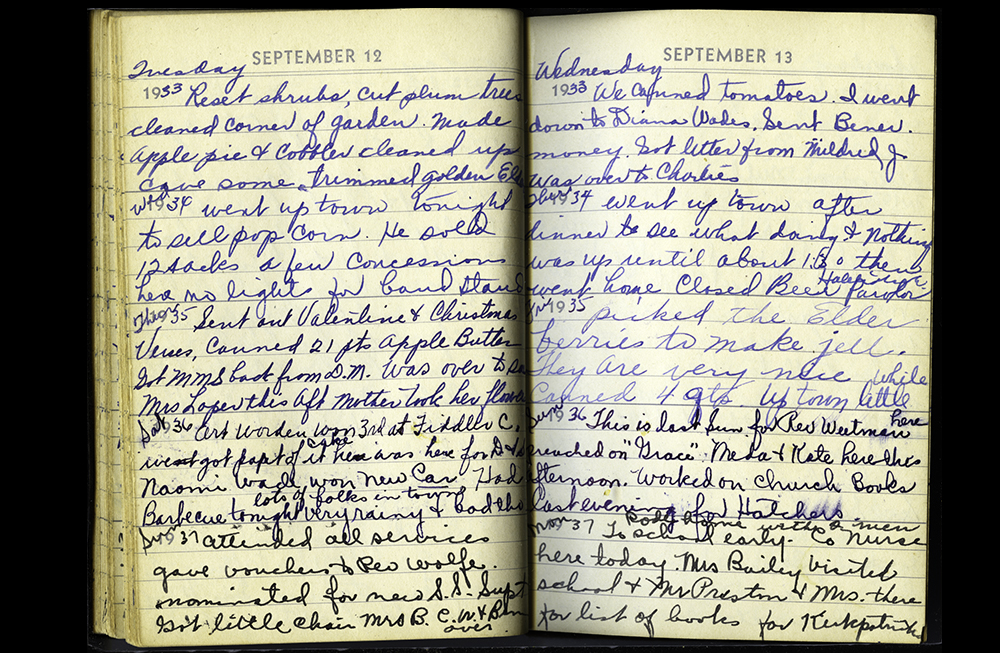 SEPTEMBER 12
Tuesday
1933 Reset shrubs, cut plum trees
cleaned corner of garden. Made
Apple pie & Cobbler cleaned up
cave some, trimmed golden Eld
1934 went up town tonight
to sell pop corn. He sold
12 sacks a few concessions
here no lights for band stand
Thurs 1935 Sent out Valentine & Christmas
Verses, Canned 21 pts Apple Butter
Got MMS back from D.M. Was over to
Mrs Loper this aft Mother took her flowers
Sat 1936 Art Worden won 3rd at Fiddler C.
went got part of it here was here for
Cake
Naomi Wade won New Car. Had
lots of folks in town
Barbecue tonight very rainy & bad
Sun 1937 attended all services
gave voucher to Rev Wolfe.
nominated for new S.S. Supt
Got little chair Mrs B. C. W. & Ben
over
SEPTEMBER 13
Wednesday
1933 We Canned tomatoes. I went
down to Diana Wades. Sent Bener.
money. Got letter from Mildred J
was over to Charlies
Thurs 1934 went up town after
dinner to see what doing & Nothing
was up until about 1:30 then
went home Closed Beer Parlor
Fri 1935 picked the Elder
berries to make jell.
They are very nice while
Canned 4 qts up town little
Sun 1936 This is last Sun for Rev Weetman
here
preached on "Grace". Neda & Kate here this
afternoon. Worked on Church Books
last evening for Hatchells
Mon 1937 To school early. Co Nurse
here today. Mrs Bailey visited
school & Mr Preston & Mrs. there
for list of books for Kirkpatrick